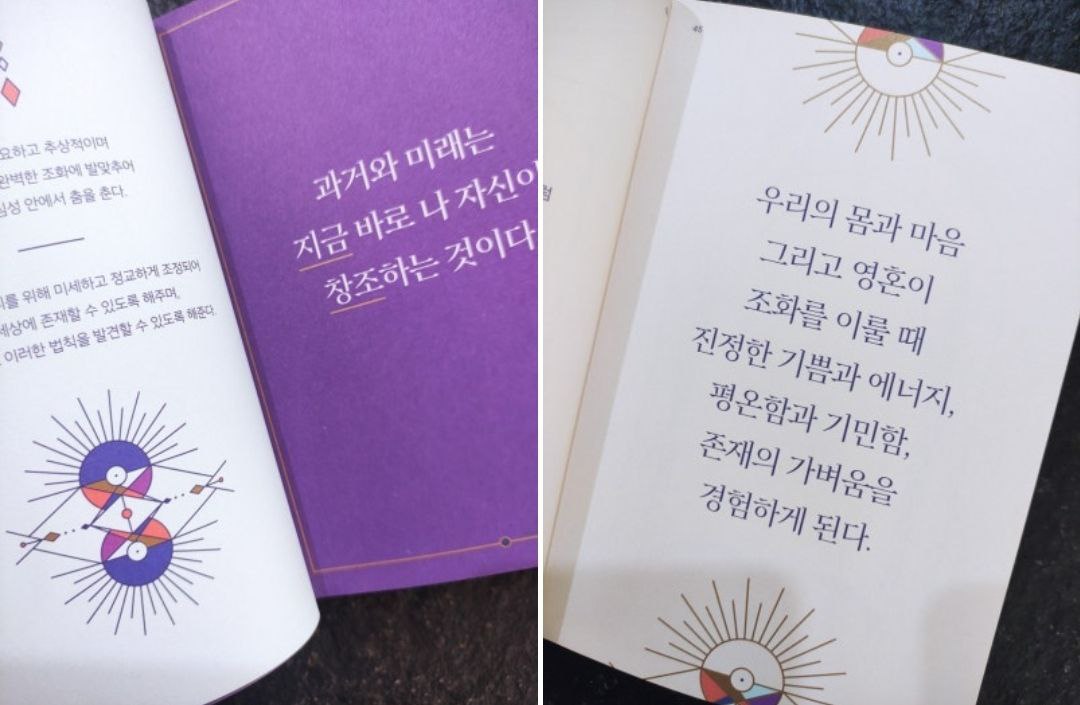 하고 추상적이며
완벽한 조화에 발맞추어
심성 안에서 춤을 춘다.
위해 미세하고 정교하게 조정되어
세상에 존재할 수 있도록 해주며,
이러한 법칙을 발견할 수 있도록 해준다.
과거와 미래는
지금 바로 나 자신이
창조하는 것이다
45
우리의 몸과 마음
그리고 영혼이
조화를 이룰 때
진정한 기쁨과 에너지,
평온함과 기민함,
존재의 가벼움을
경험하게 된다.